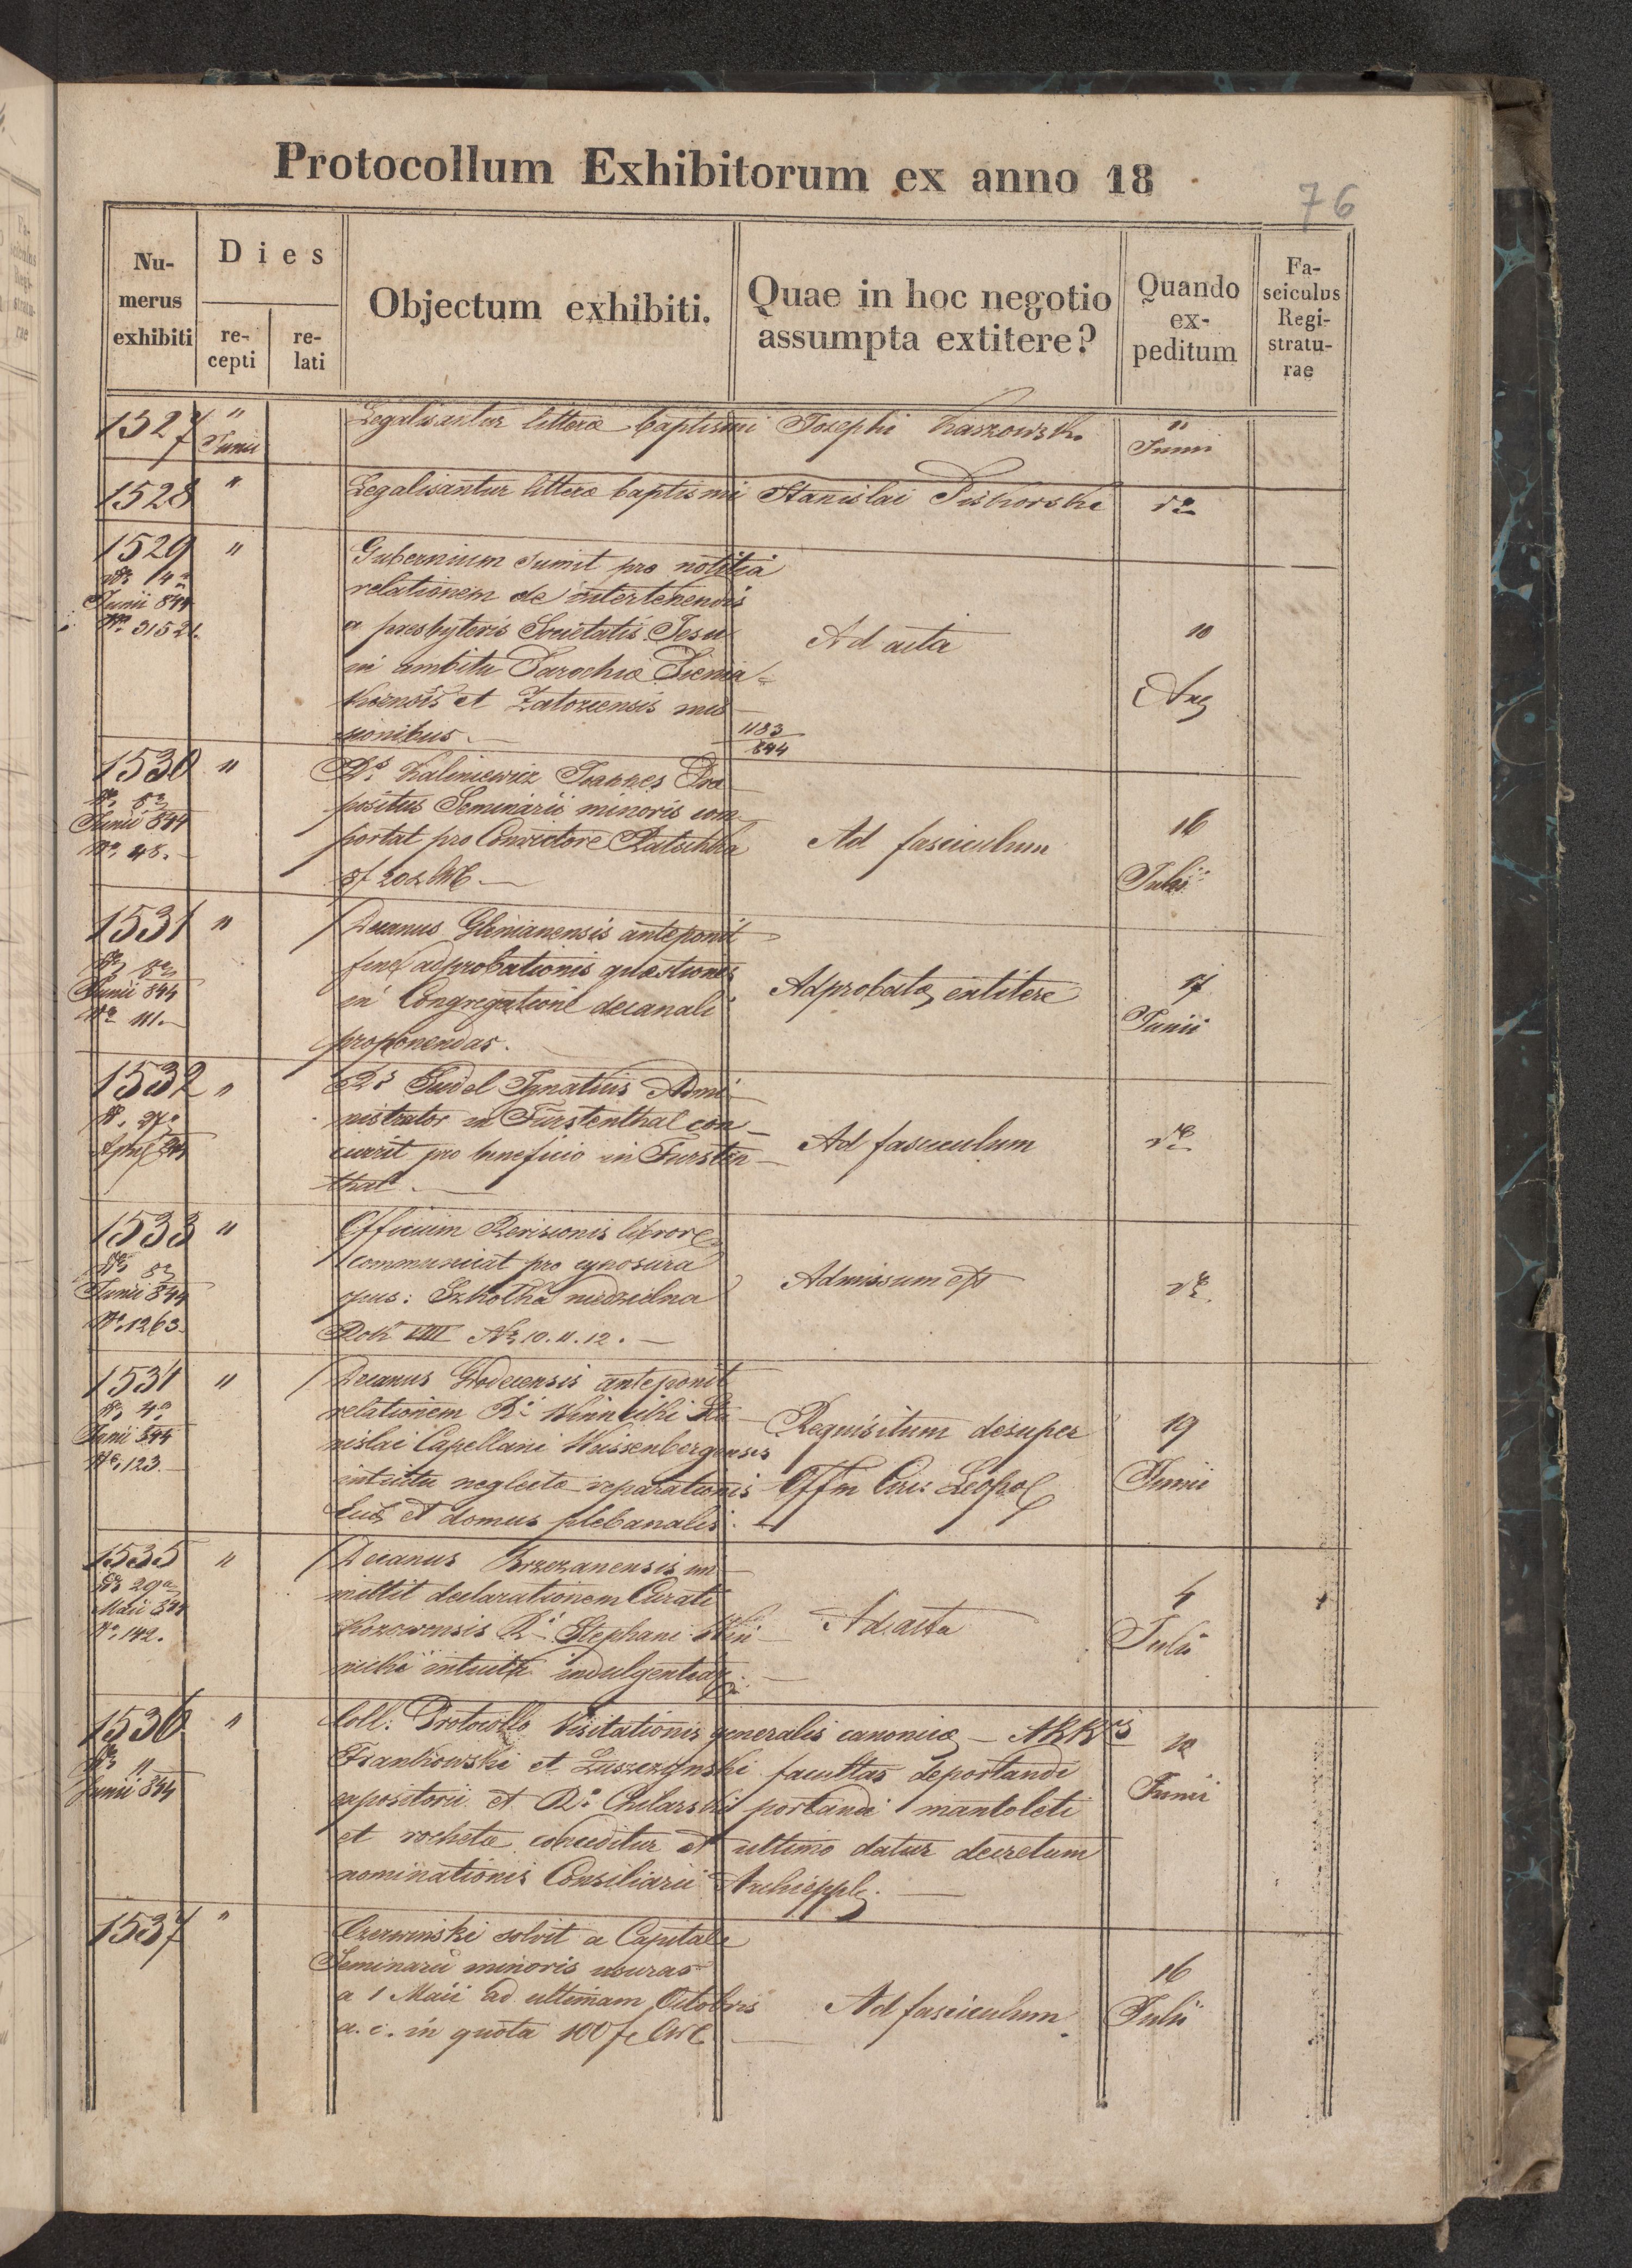 Protocollum Exhibitorum ex anno 18
76
Nu-
merus
exhibiti
Dies
re-
cepti
re-
lati
Objectum exhibiti.
Quae in hoc negotio
assumpta extitere?
Quando
ex-
peditum
Fa-
sciculus
Regi-
stratu-
rae
1527
"
Junii
Legalisantur litterae baptismi Josephi Kaszowski
11
Junii
1528
"
Legalisantur litterae baptismi Stanislai Piskorski
dto
1529
"
dto 14a
Junii 844
No 31521.
Gubernium sumit pro notitia
relationem de intertenendis
a presbyteris Societatis Jesu
in ambitu Parochiae Pienia-
kiensis et Zatoriensis mis-
sionibus.
1183
844
Ad acta
10
Aug
1530
"
dto 8a
Junii 844
No 48.
Rs. Kaliniewicz Joannes Prae
positus Seminarii minoris com
portat pro Convictore Ratschka
8f 20x CM.
Ad fasciculum
16
Julii
1531
"
dto 8a
Junii 844
No 111.
Decanus Glinianensis anteponit
fine adprobationis quaestiones
in Congregatione decanali
proponendas.
Adprobatae extitere
17
Junii
1532
"
d. 27a
April 844
Rs Seidel Ignatius Admi-
nistrator in Fürstenthal con-
currit pro beneficio in Fursten-
thal.
Ad fasciculum
dto
1533
"
dto 8a
Junii 844
No 1263.
Officium Revisionis libror
communicat pro cynosura
opus: Szkołka niedzielna
Rok VIII No 10. 11. 12.
Admissum est
dto.
1534
"
dto 4a
Junii 844
No. 123.
Decanus Grodecensis anteponit
relationem Ri Winnicki Sta-
nislai Capellani Weissenbergensis
intuitu neglectae reparationis
Ecclae et domus plebanalis.
Requisitum desuper
Offm Circ. Leopol
19
Junii
1535
"
dto 29a
Maii 844
No. 142.
Decanus Brzezanensis im-
mittit declarationem Curati
Kozowensis Ri Stephani Win-
nicki intuitu indulgentiar.
Ad acta
4
Julii
1536
"
dto 11
Junii 844
Coll. Protocollo Visitationis generalis canonicae — ARRdis
Frankowski et Luszczynski facultas deportandi
expositorii et Ro Cularski portandi mantoleti
et rochetae conceditur et ultimo datur decretum
nominationis Consiliarii Archieppl.
Junii
1537
"
Czerwinski solvit a Capitale
Seminarii minoris usuras
a 1 Maii ad ultimam Octobris
a. c. in quota 100 f. CMC.
Ad fasciculum.
16
Julii